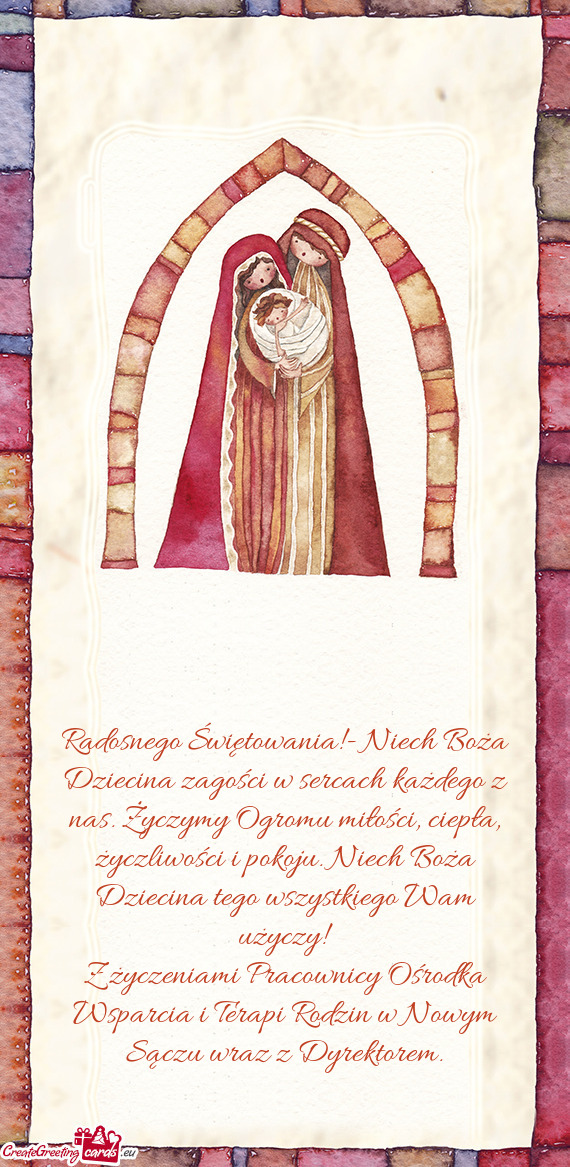 Radosnego Świętowania!- Niech Boża
Dziecina zagości w sercach każdego z
nas. Życzymy Ogromu miłości, ciepła,
życzliwości i pokoju. Niech Boża
Dziecina tego wszystkiego Wam
użyczy!
Z życzeniami Pracownicy Ośrodka
Wsparcia i Terapi Rodzin w Nowym
Sączu wraz z Dyrektorem.
CreateGreeting cards .eu